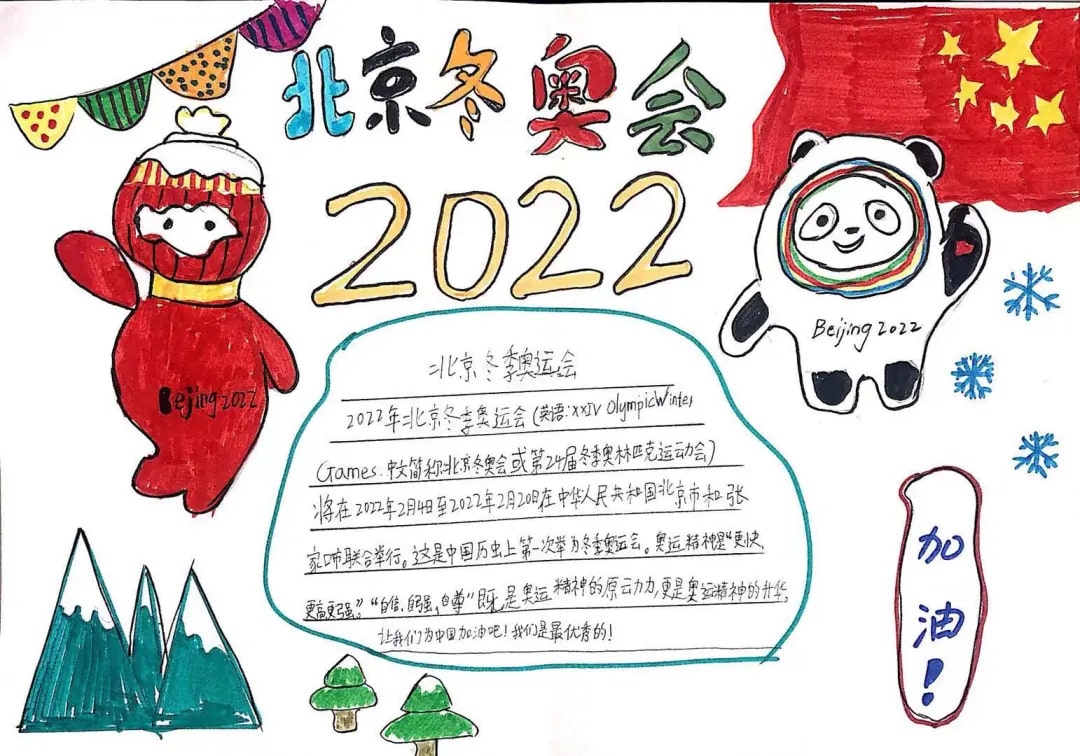 北京冬奥会
2022
Beijing 2022
Beijing 2022
北京冬季奥运会
2022年北京冬季奥运会(英语:XXIV Olympic Winter
Games.中文简称北京冬奥会或第24届冬季奥林匹克运动会)
将在2022年2月4日至2022年2月20日在中华人民共和国北京市和张
家口市联合举行。这是中国历史上第一次举办冬季奥运会。奥运精神是“更快、
更高更强。”“自信、自强、自尊”既是奥运精神的原动力,更是奥运精神的升华,
让我们为中国加油吧!我们是最优秀的!
加
油
!